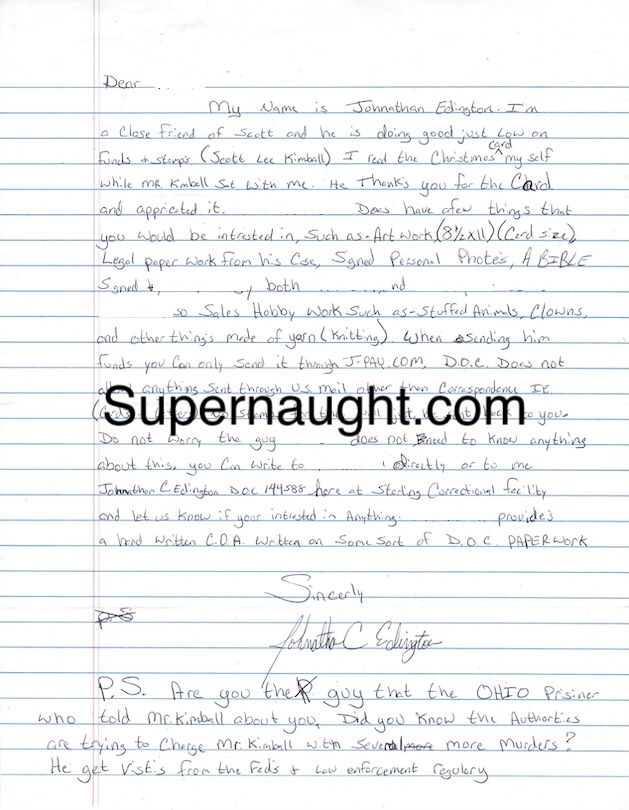 Dear
My Name is Johnathan Edington. I'm
a close friend of Scott and he is doing good just Low on
funds + stamps. (Scott Lee Kimball) I read the Christmas card my self
while MR. Kimball Sat with me. He Thank's you for the Card
and appricited it. Does have afew things that
you would be intrested in, Such as-Art work (8½x11) (Card size),
Legal paper work from his Case, Signed Personal Photo's, A BIBLE
Signed both nd
so Sales Hobby Work Such as-Stuffed Animals, Clowns,
and other thing's made of yarn (Knitting). When Sending him
funds you Can only Send it through J-PAY.COM, D.O.C. Does not
anything Sent through U.S. mail other then Correspondence IE
Supernaught.com
to you.
Do not worry the guy does not need to know anything
about this, you Can write to directly or to me
Johnathan C Edington DOC 144588 here at Sterling Correctional facility
and let us Know if your intrested in Anything. provide's
a hand written C.O.A. written on Some Sort of D.O.C. PAPERWORK
Sincerly
PS
Johnathan C Edington
P.S. Are you the guy that the OHIO Prisiner
who told Mr. Kimball about you, Did you Know the Authorties
are trying to Charge Mr. Kimball with Several more Murders?
He get Vistis from the Fed's + Law enforcement regulery